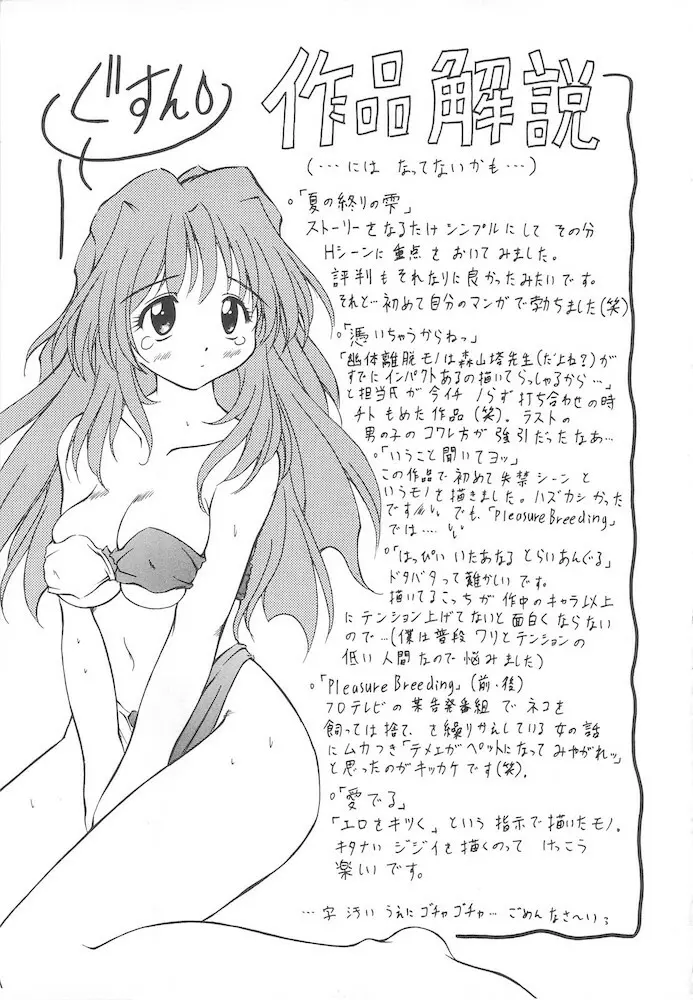 ぐすん
作品解説
(…には なってないかも…)
。「夏の終りの雫」
ストーリーをなるたけ シンプルにして その分
Hシーンに重点を おいてみました。
評判もそれなりに良かったみたいです。
それと…初めて自分のマンガで勃ちました(笑)
。「憑いちゃうからねっ」
「幽体離脱モノは森山塔先生(だよね?)が
すでにインパクトあるの描いてらっしゃるから…」
と担当氏が今イチ ノらず 打ち合わせの時
チトもめた作品(笑)。ラストの
男の子のコワレ方が 強引だったなあ…
。「いうこと聞いてヨッ」
この作品で初めて失禁シーンと
いうモノを描きました。ハズカシかった
です でも、「Pleasure Breeding」
では……
。「はっぴい いたあなる とらいあんぐる」
ドタバタって難かしいです。
描いてるこっちが 作中のキャラ以上
にテンション上げてないと面白くならない
ので…(僕は普段ワリとテンションの
低い人間なので悩みました)
。「Pleasure Breeding」(前・後)
フロテレビの某告発番組でネコを
飼っては捨て、を繰りかえしている女の話
にムカつき「テメェがペットになってみやがれッ」
と思ったのがキッカケです(笑)。
。「愛でる」
「エロをキツく」という指示で描いたモノ。
キタナいジジイを描くのって けっこう
楽しいです。
…字汚いうえにゴチャゴチャ…ごめんなさ〜いっ